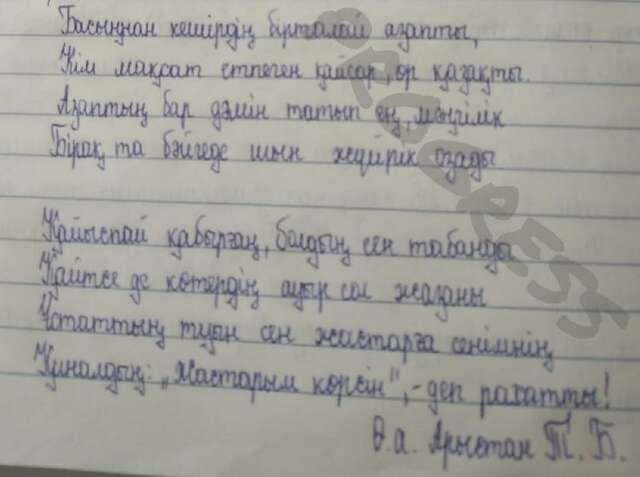 Басыңнан кешірдің бірталай азапты,
Кім мақсат етпеген қайсар, өр қазақты.
Азаптың бар дәмін татып ең, мәңгілік
Бірақ та бәйгеде шын жүйрік озады
Қайыспай қабырғаң, болдың сен табанды
Қайтсе де көтердің ауыр сол жазаны
Ұстаттың туын сен жастарға сенімнің
Қиналдың: „Жастарым көрсін", - деп рахатты!
Ө.а. Арыстан Т. Б.
PROGRESS